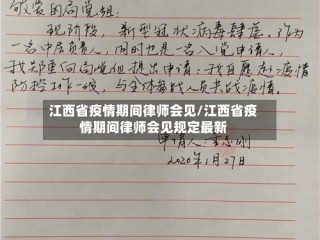 敬爱的局党组:
现阶段，新型冠状病毒肆虐，作为
一名中层负责人，同时也是一名入党申请人，
我郑重向局党组提出申请：我自愿赴疫情
防控工作一线，与全体参战人员共战疫情。
江西省疫情期间律师会见/江西省疫
情期间律师会见规定最新
申请人:
2020年1月27日